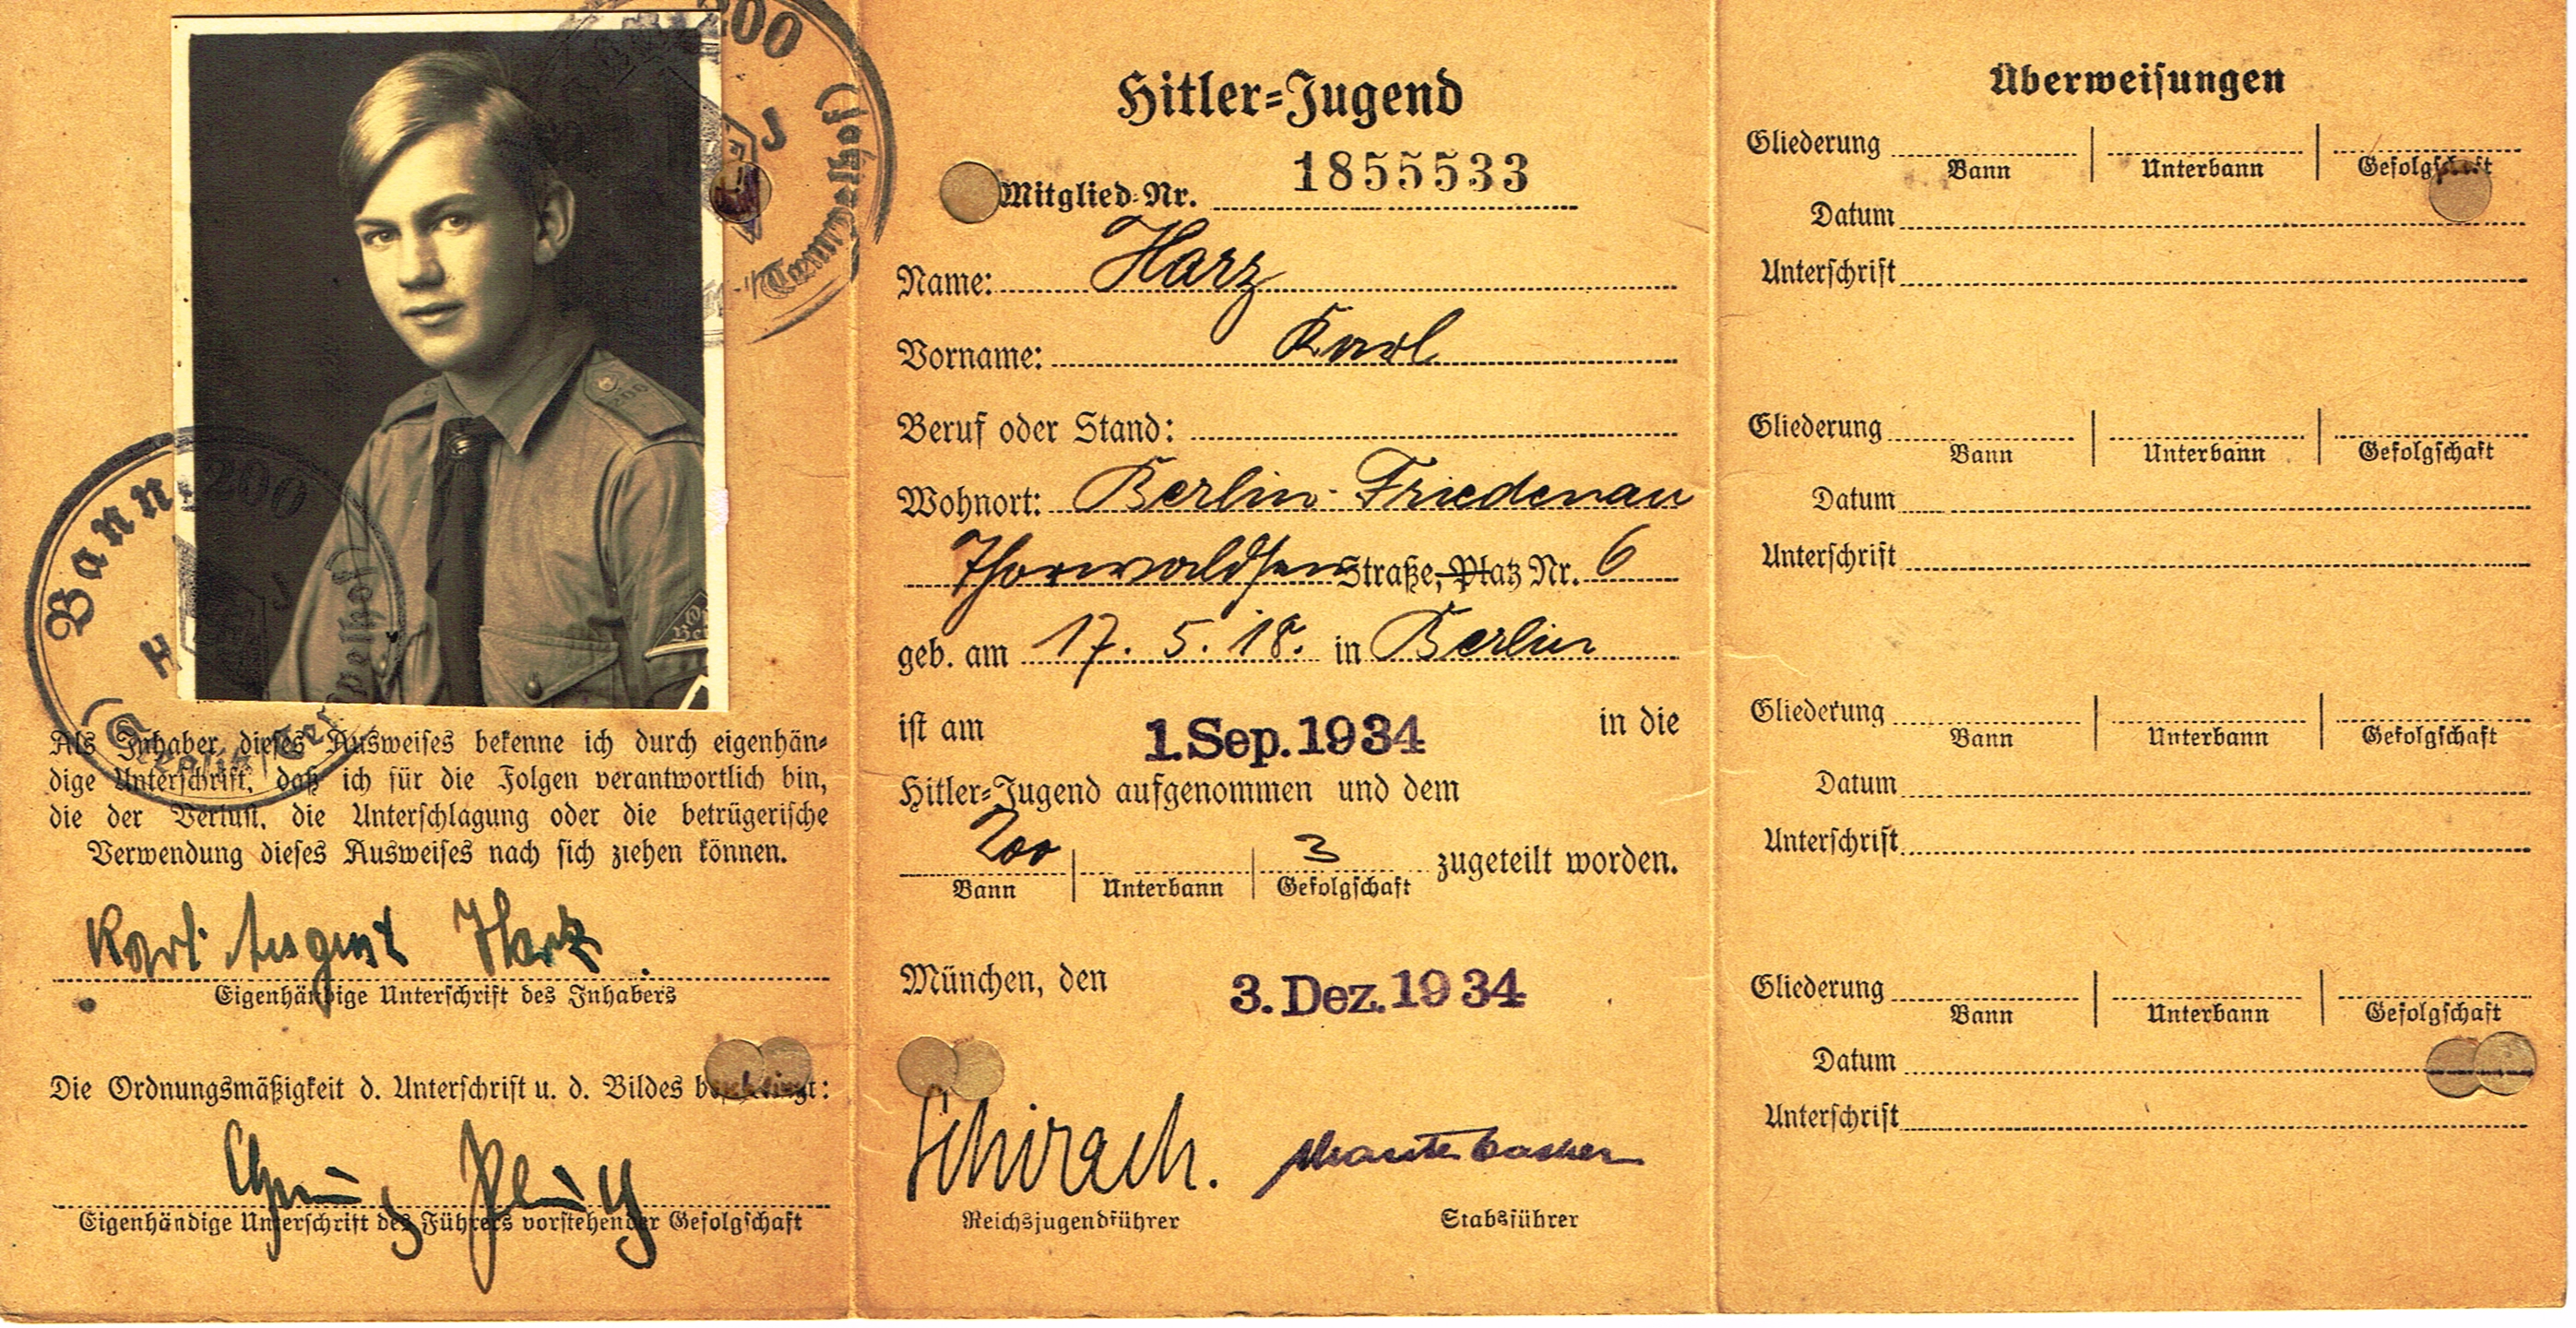 Bann 200
H J
(Tempelhof)
200
J
(Teltow
Als Inhaber dieses Ausweises bekenne ich durch eigenhän-
dige Unterschrift, daß ich für die Folgen verantwortlich bin,
die der Verlust, die Unterschlagung oder die betrügerische
Verwendung dieses Ausweises nach sich ziehen können.
Karl August Harz
Eigenhändige Unterschrift des Inhabers
Die Ordnungsmäßigkeit d. Unterschrift u. d. Bildes bescheinigt:
Eigenhändige Unterschrift des Führers vorstehender Gefolgschaft
Hitler-Jugend
Mitglied-Nr. 1855533
Name: Harz
Vorname: Karl
Beruf oder Stand:
Wohnort: Berlin-Friedenau
Thorwaldsen Straße, Platz Nr. 6
geb. am 17. 5. 18. in Berlin
ist am 1. Sep. 1934 in die
Hitler-Jugend aufgenommen und dem
200 3 zugeteilt worden.
Bann Unterbann Gefolgschaft
München, den 3. Dez. 1934
Schirach. Lauterbacher
Reichsjugendführer Stabsführer
Überweisungen
Gliederung
Bann Unterbann Gefolgschaft
Datum
Unterschrift
Gliederung
Bann Unterbann Gefolgschaft
Datum
Unterschrift
Gliederung
Bann Unterbann Gefolgschaft
Datum
Unterschrift
Gliederung
Bann Unterbann Gefolgschaft
Datum
Unterschrift